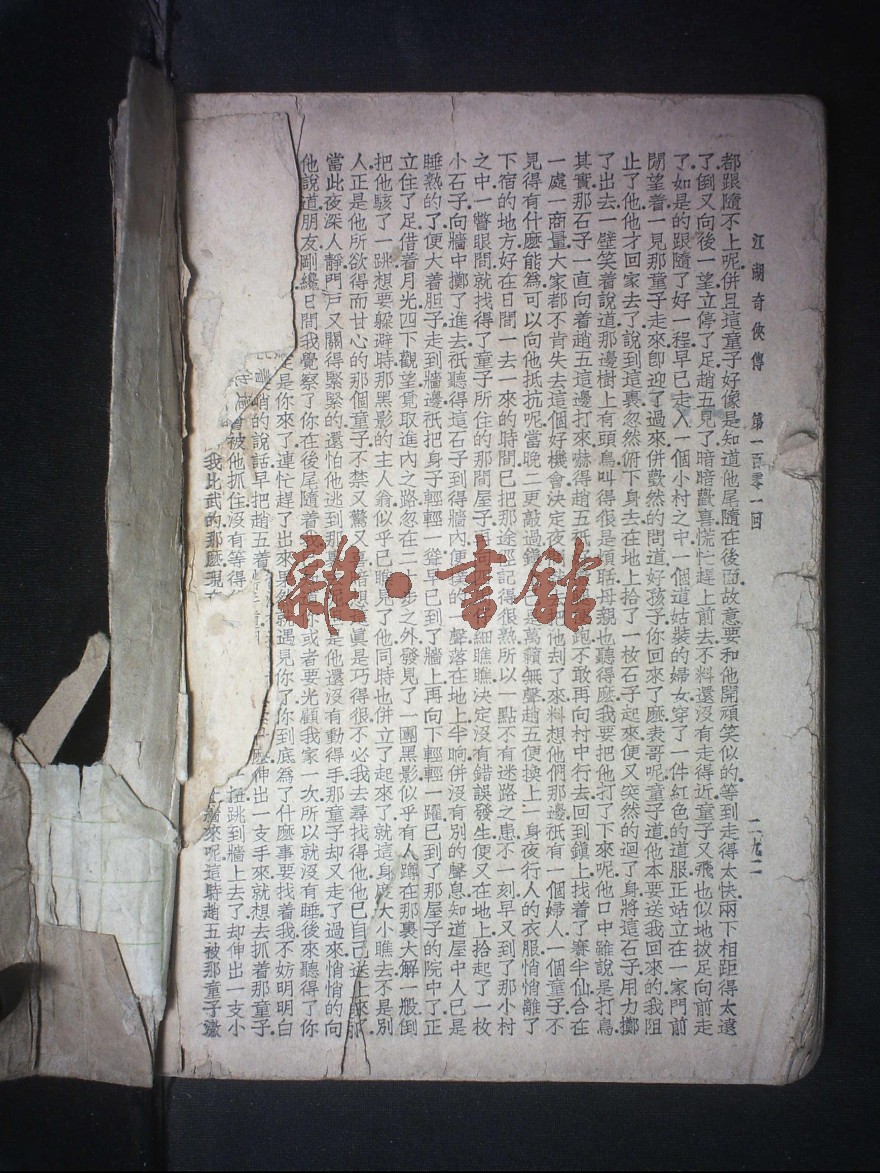 江湖奇俠傳　第一百零一回　二九二
都跟隨不上呢併且這童子好像是知道他尾隨在後面故意要和他開頑笑似的等到走得太快兩下相距得太遠
了倒又向後一望立停了足趙五見了暗暗歡喜慌忙趕上前去不料還沒有走得近童子又飛也似地拔足向前走
了如是的跟隨了好一程早已走入一個小村之中一個道姑裝的婦女穿了一件紅色的道服正站立在一家門前
閒望着一見那童子走來卽迎了過來併歡然的問道好孩子你回來了麽表哥呢童子道他本要送我回來的我阻
止了他他才回家去了說到這裏忽然俯下身去在地上拾了一枚石子起來便又突然的迴了身將這石子用力擲
了出去一壁笑着說道那邊樹上有頭鳥叫得很是煩聒母親也聽得麽我要把他打了下來呢他口中雖說是打鳥
其實那石子一直向着趙五這邊打來嚇得趙五跑不敢再向村中行去回到鎭上找着了賽半仙合在
一處一商量大家都不肯失去這個好機會決定夜他刦了來料想他們那邊祇有一個婦人一個童子不
見得有什麽能為可以向他抵抗呢當晚二更敲過鎭是萬籟無聲趙五便換上一身夜行人的衣服悄悄離了
下宿的地方好在日間一去一來的時間已把那途徑記得很熟所以一點不有迷路之患不一刻早又到了那小村
之中一瞥眼間就找得了童子所住的那間屋子細瞧瞧決定沒有錯誤發生便又在地上拾起了一枚
小石子向牆中擲了進去祇聽得這石子到得牆內便撲的一聲落在地上半晌併沒有別的聲息知道屋中人已是
睡熟的了便大着胆子走到牆邊祇把身子輕輕一聳早已到了牆上再向下輕輕一躍已到了那屋子的院中了正
立住了足借着月光四下觀望覓取進內之路忽在二十步之外發見了一團黑影似乎有人蹲在那裏大解一般倒
把他駭了一跳想要躲避時那黑影的主人翁似乎已瞧見了他同時也併立了起來了就這身度大小瞧去不是別
人正是他所欲得而甘心的那個童子不禁又驚又喜暗想眞是巧得很不必我去尋找得他他已自己送上來
當此夜深人靜門戶又關得緊緊的還怕他逃到那是他還沒有動得手那童子却又走了過來悄悄的向
他說道朋友剛纔日間我覺察了你在後尾隨着我或者要光顧我家一次所以就沒有睡後來聽得了你
是你來了連忙趕了出來果然就遇見你了你到底為了什麽事要找着我不妨明明白
悄的說話早把趙五着伸出一支手來就想去抓着那童子
曾被他抓住沒有等得跳到牆上去了却伸出一支小
我比武的那麽現在牆來呢這時趙五被那童子激